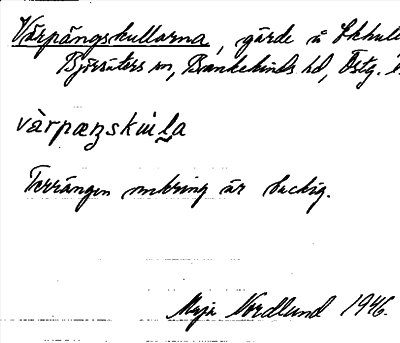 Värpängskullarna, gärde å
Björsäters sn, Bankekinds hd, Östg.
vàrpæŋskùla
Terrängen omkring är backig.
Maja Nordlund 1946.